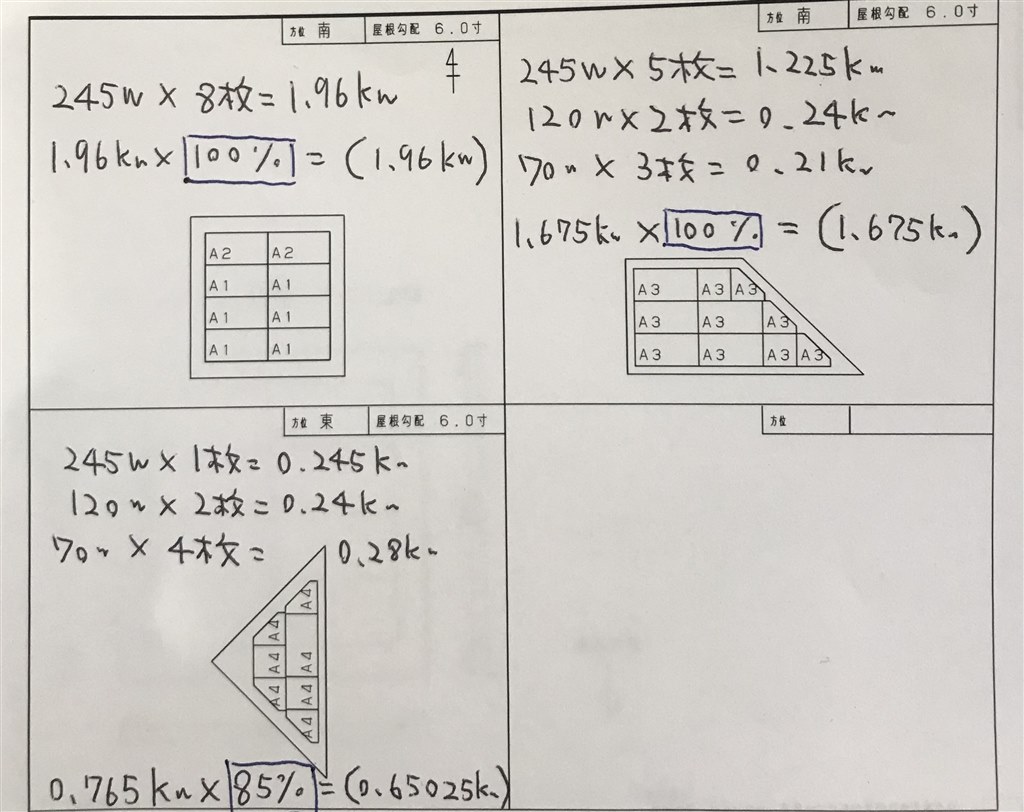 方位 南 屋根勾配 6.0寸
245w × 8枚 = 1.96kw
1.96kw × 100% = (1.96kw)
A2 A2
A1 A1
A1 A1
A1 A1
方位 南 屋根勾配 6.0寸
245w × 5枚 = 1.225kw
120w × 2枚 = 0.24kw
70w × 3枚 = 0.21kw
1.675kw × 100% = (1.675kw)
A3 A3 A3
A3 A3 A3
A3 A3 A3 A3
方位 東 屋根勾配 6.0寸
245w × 1枚 = 0.245kw
120w × 2枚 = 0.24kw
70w × 4枚 = 0.28kw
A4
A4
A4 A4
A4 A4
A4
0.765kw × 85% = (0.65025kw)
方位